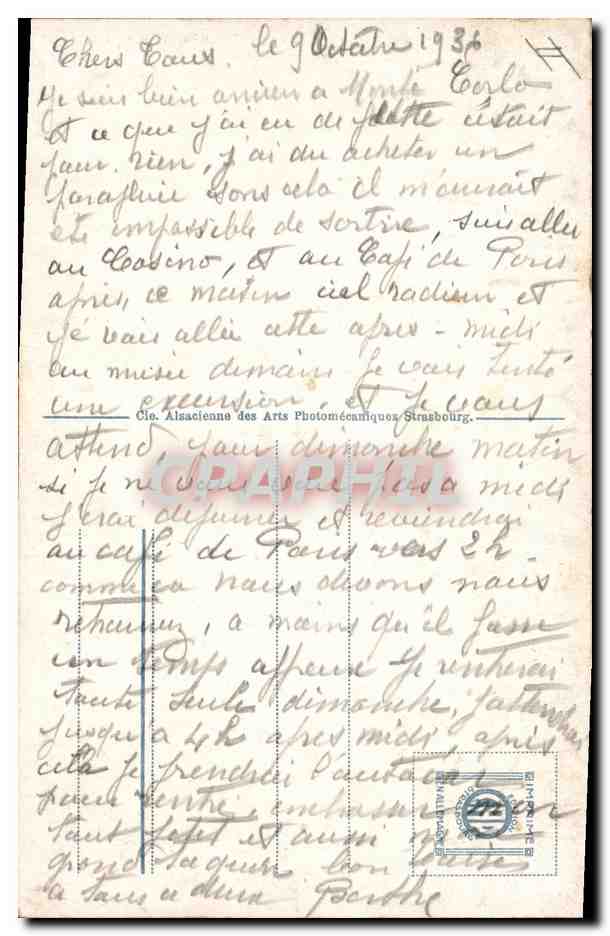 Chers Tous. le 9 Octobre 1936
je suis bien arrivée a Monte Carlo
et ce que j'ai eu de flotte c'était
pour rien, j'ai du acheter un
parapluie sans cela il m'aurait
été impossible de sortire, suis allée
au Casino, et au Café de Paris
après, ce matin ciel radieux et
je vais allée cette après-midi
au musée demain je vais tenté
une excursion, et je vous
Cie. Alsacienne des Arts Photomécaniques Strasbourg.
attend, pour dimanche matin
si je ne vous vois pas a midi
j'irai déjeuner et reviendrai
au café de Paris vers 2h
comme ça nous devons nous
retrouver, a moins qu'il fasse
un temps affreux je rentrerai
toute seule dimanche, j'attendrai
jusqu'a 4h après midi, après
cela je prendrai l'autocar
pour rentré, embrasser mon
tout petit et aussi
grand bon
a tous deux Berthe
CPARHIL
IMPRIMÉ
EN ALLEMAGNE